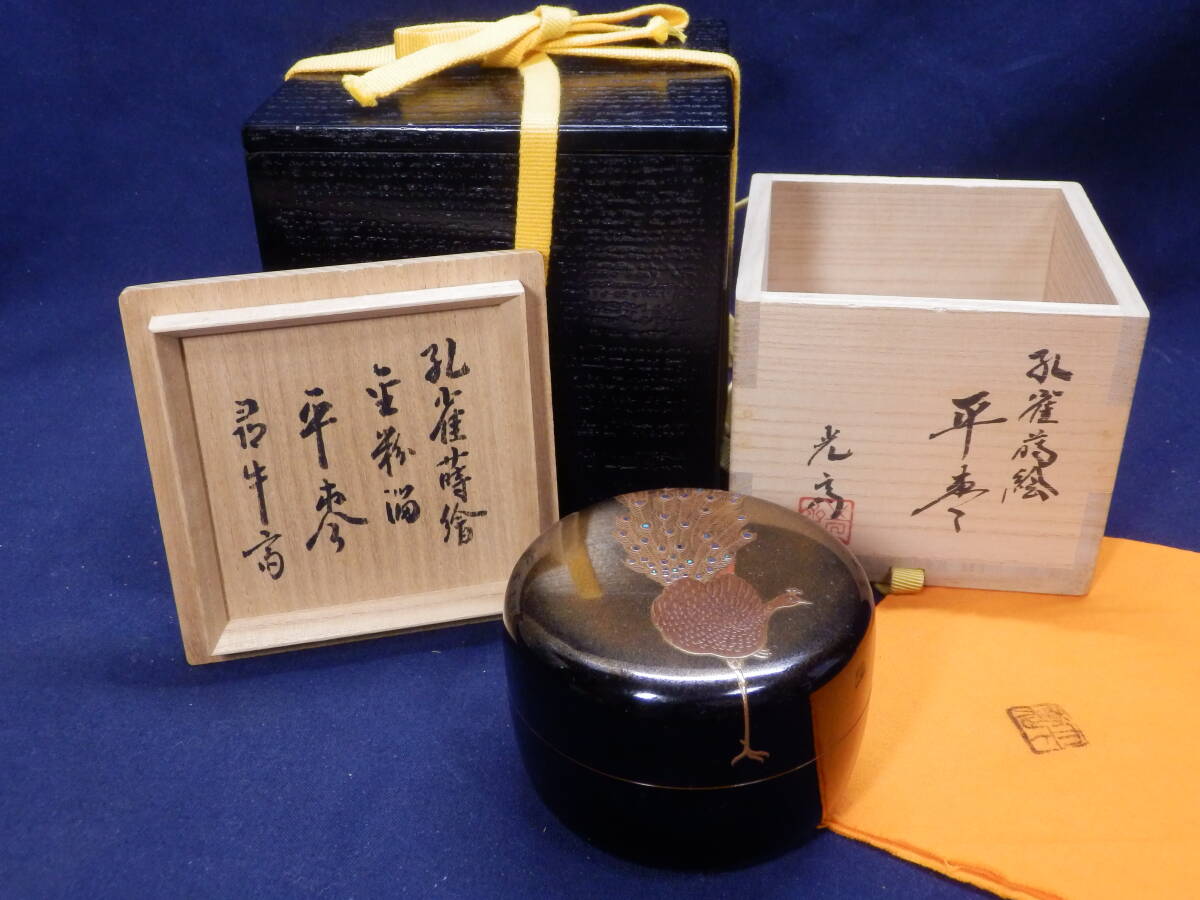 孔雀蒔繪
金粉溜
平棗
尋牛斎
孔雀蒔絵
平棗
光斎